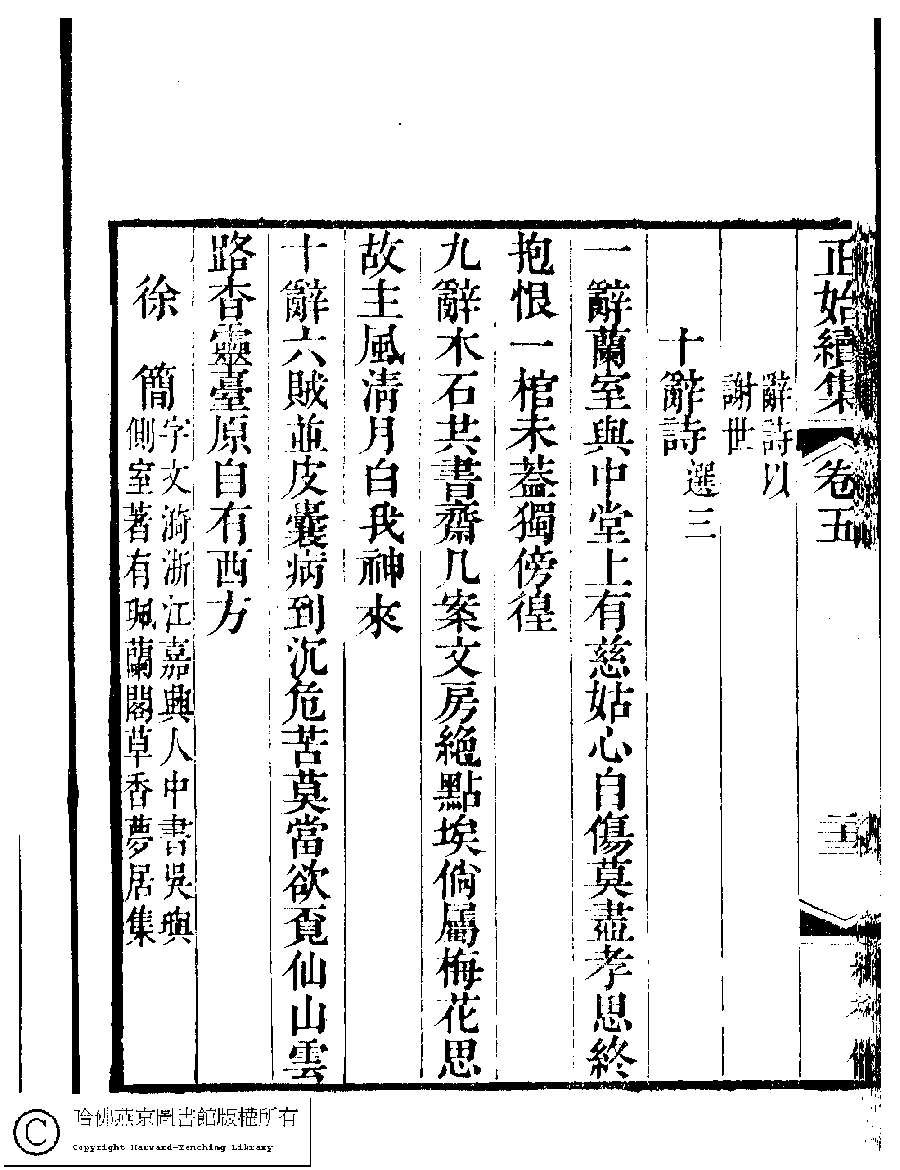 正始續集 卷五
辭詩以
謝世
十辭詩 選三
一辭蘭室與中堂上有慈姑心自傷莫盡孝思終
抱恨一棺未葢獨傍徨
九辭木石共書齋几案文房絶點埃倘屬梅花思
故主風淸月白我神來
十辭六賊並皮囊病到沉危苦莫當欲覔仙山雲
路杳靈臺原自有西方
徐 簡
字文漪浙江嘉興人中書吳
側室著有珮蘭閣草香夢居集
哈佛燕京圖書館版權所有
Copyright Harvard-Yenching Library